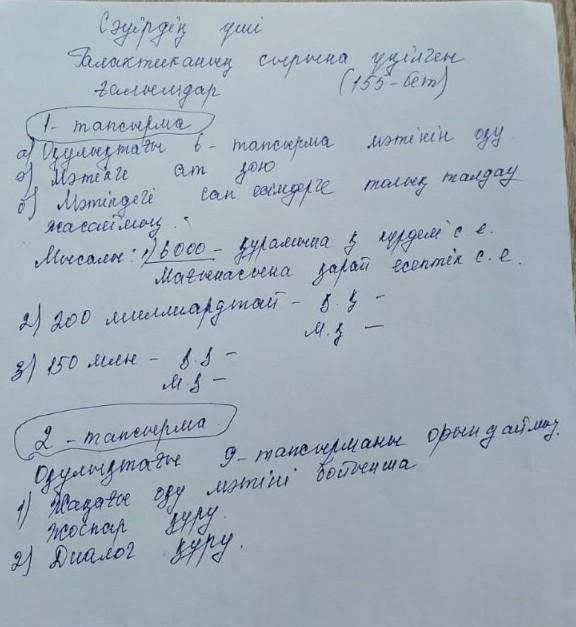 Сәуірдің үші
Галактиканың сырына үңілген
ғалымдар (155-бет)
1- тапсырма
а) Оқулықтағы 6- тапсырма мәтінін оқу
ә) Мәтінге ат қою
б) Мәтіндегі сан есімдерге толық талдау
жасаймыз.
Мысалы: 1) 6000 - құрамына қ күрделі с.е.
Мағынасына қарай есептік с.е.
2) 200 миллиардтай - Қ.Қ -
М.қ -
3) 150 млн - Қ.Қ -
М.Қ -
2 - тапсырма
Оқулықтағы 9-тапсырманы орындаймыз.
1) Жаңағы оқу мәтіні бойынша
жоспар құру.
2) Диалог құру.